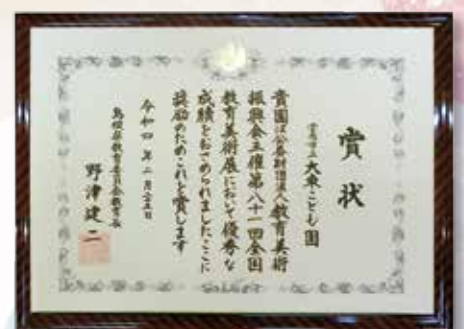 賞状
大東こども園
貴園は公益財団法人教育美術
振興会主催第八十一回全国
教育美術展において優秀な
成績をおさめられましたここに
奨励のためこれを賞します
令和四年二月二十五日
島根県教育委員会教育長
野津建二